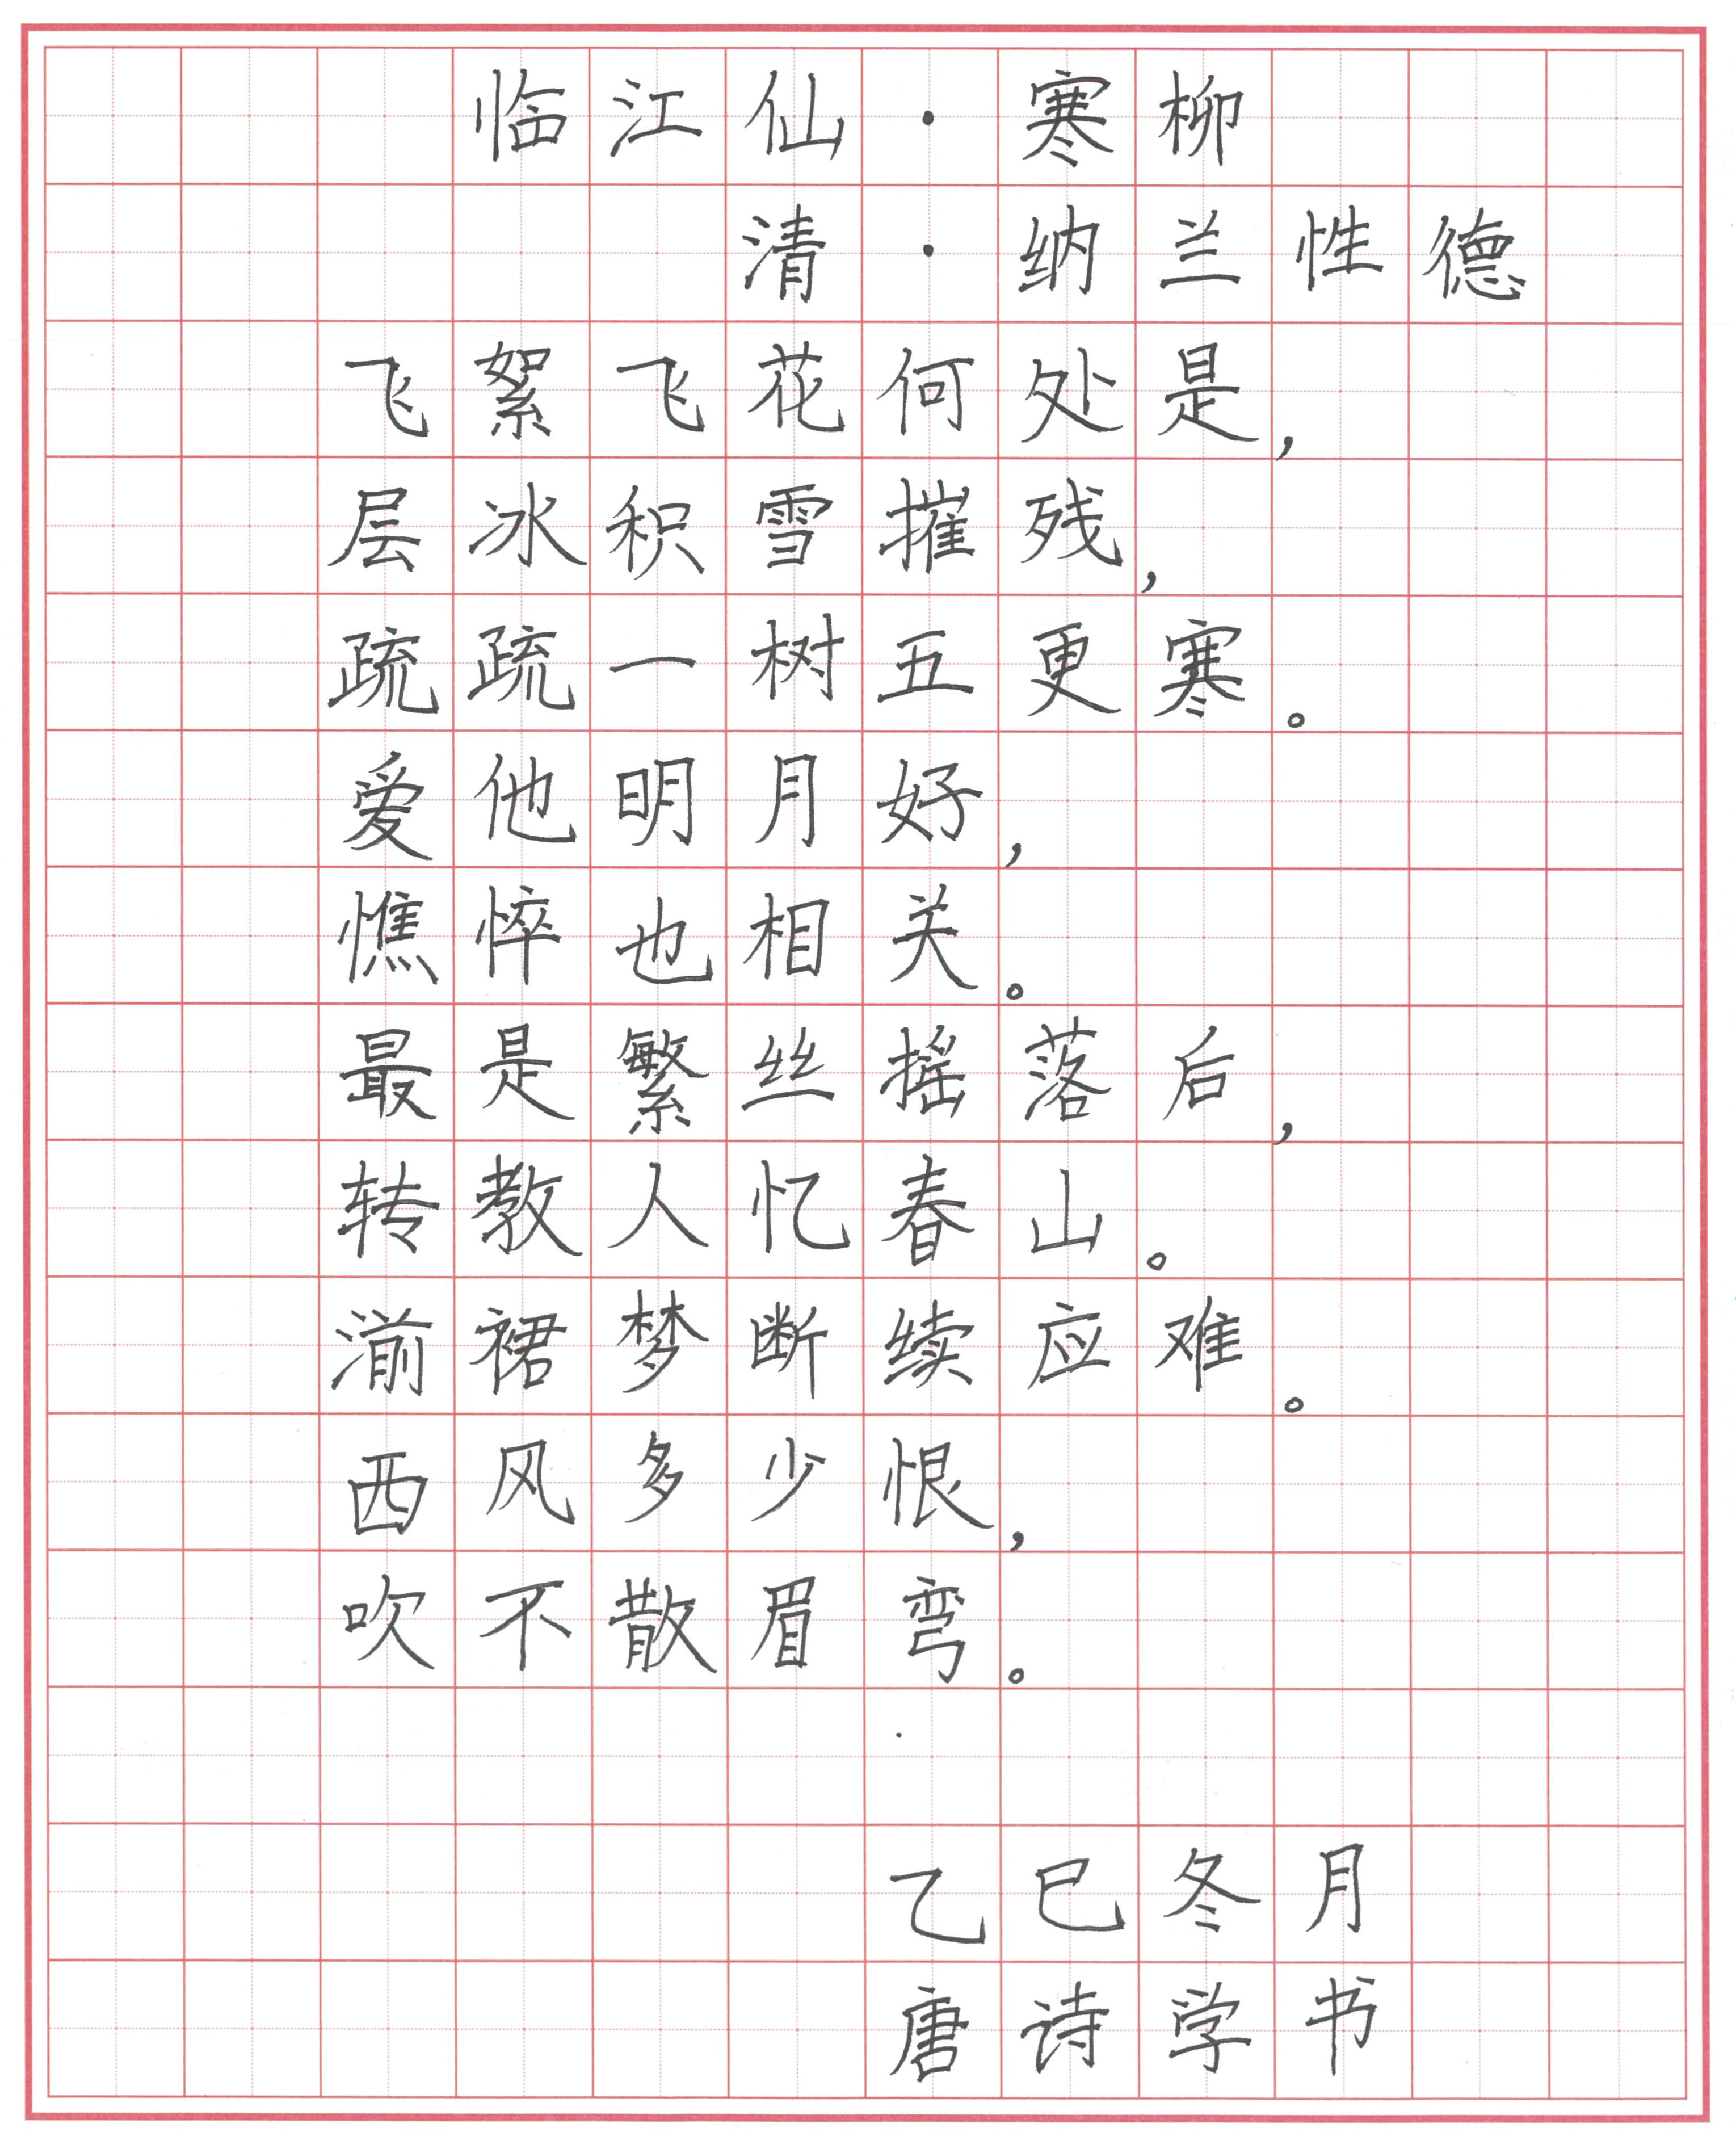 临江仙·寒柳
清·纳兰性德
飞絮飞花何处是，
层冰积雪摧残，
疏疏一树五更寒。
爱他明月好，
憔悴也相关。
最是繁丝摇落后，
转教人忆春山。
湔裙梦断续应难。
西风多少恨，
吹不散眉弯。
乙巳冬月
唐诗学书